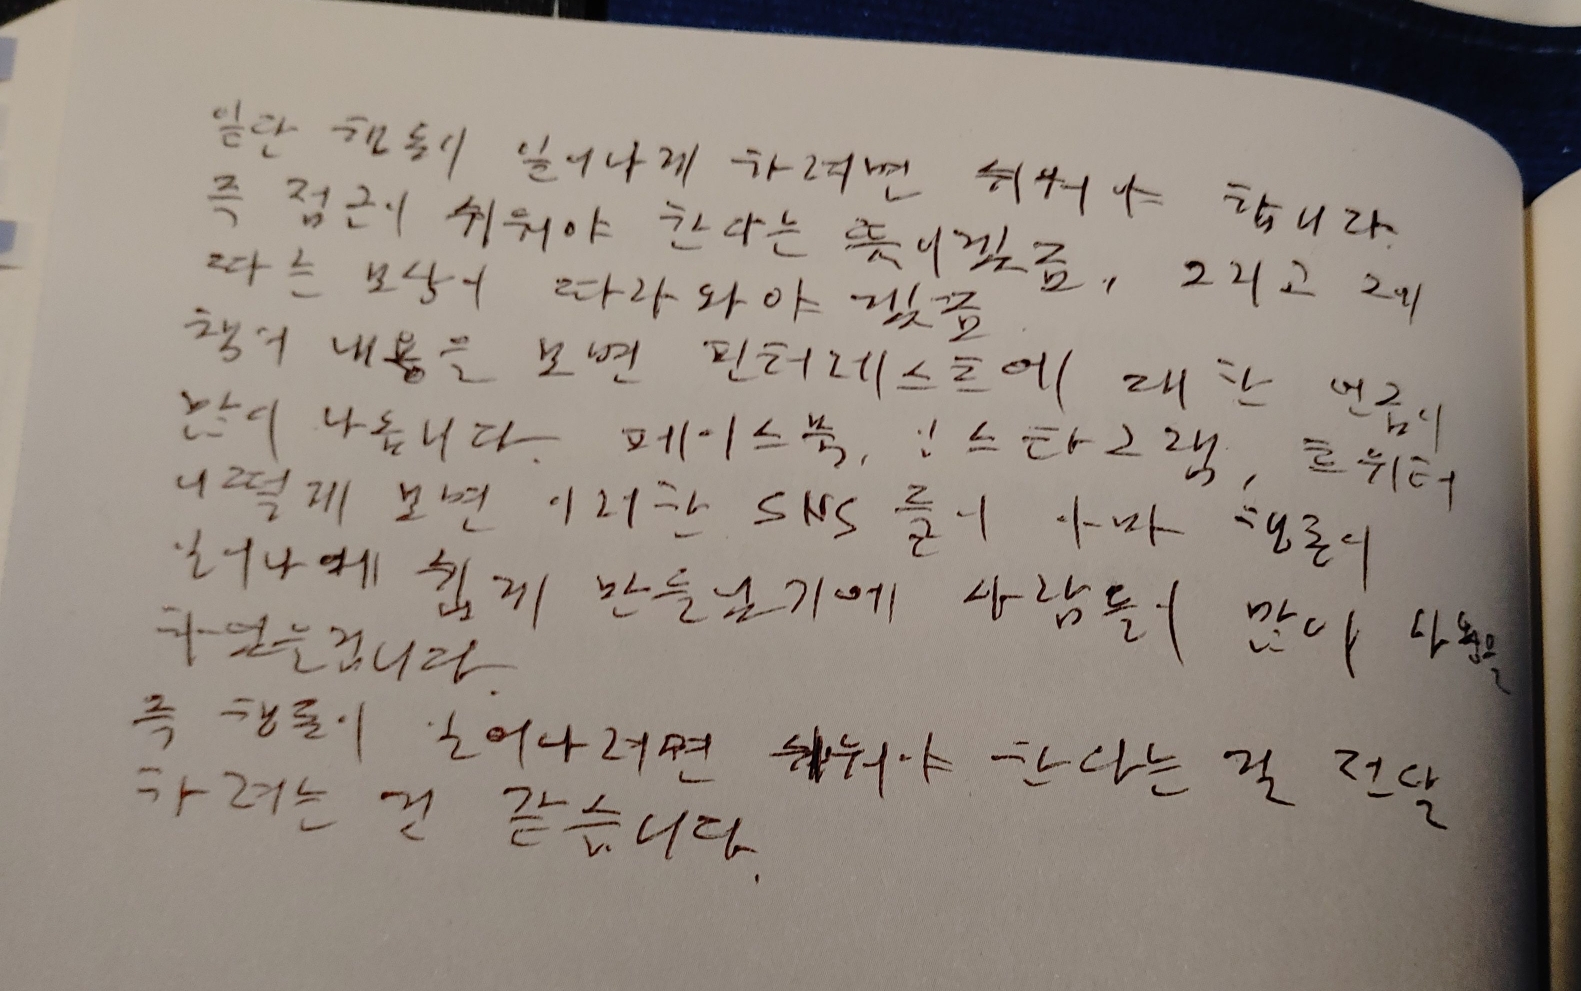 일단 행동이 일어나게 하려면 쉬워야 합니다.
즉 접근이 쉬워야 한다는 뜻이겠죠, 그리고 그에
따른 보상이 따라와야 겠죠
책의 내용을 보면 핀터레스트에 대한 언급이
많이 나옵니다. 페이스북, 인스타그램, 트위터
어떻게 보면 이러한 SNS 들이 아마 행동이
일어나게 쉽게 만들었기에 사람들이 많이 사용을
하였는겁니다.
즉 행동이 일어나려면 쉬워야 한다는 걸 전달
하려는 것 같습니다.